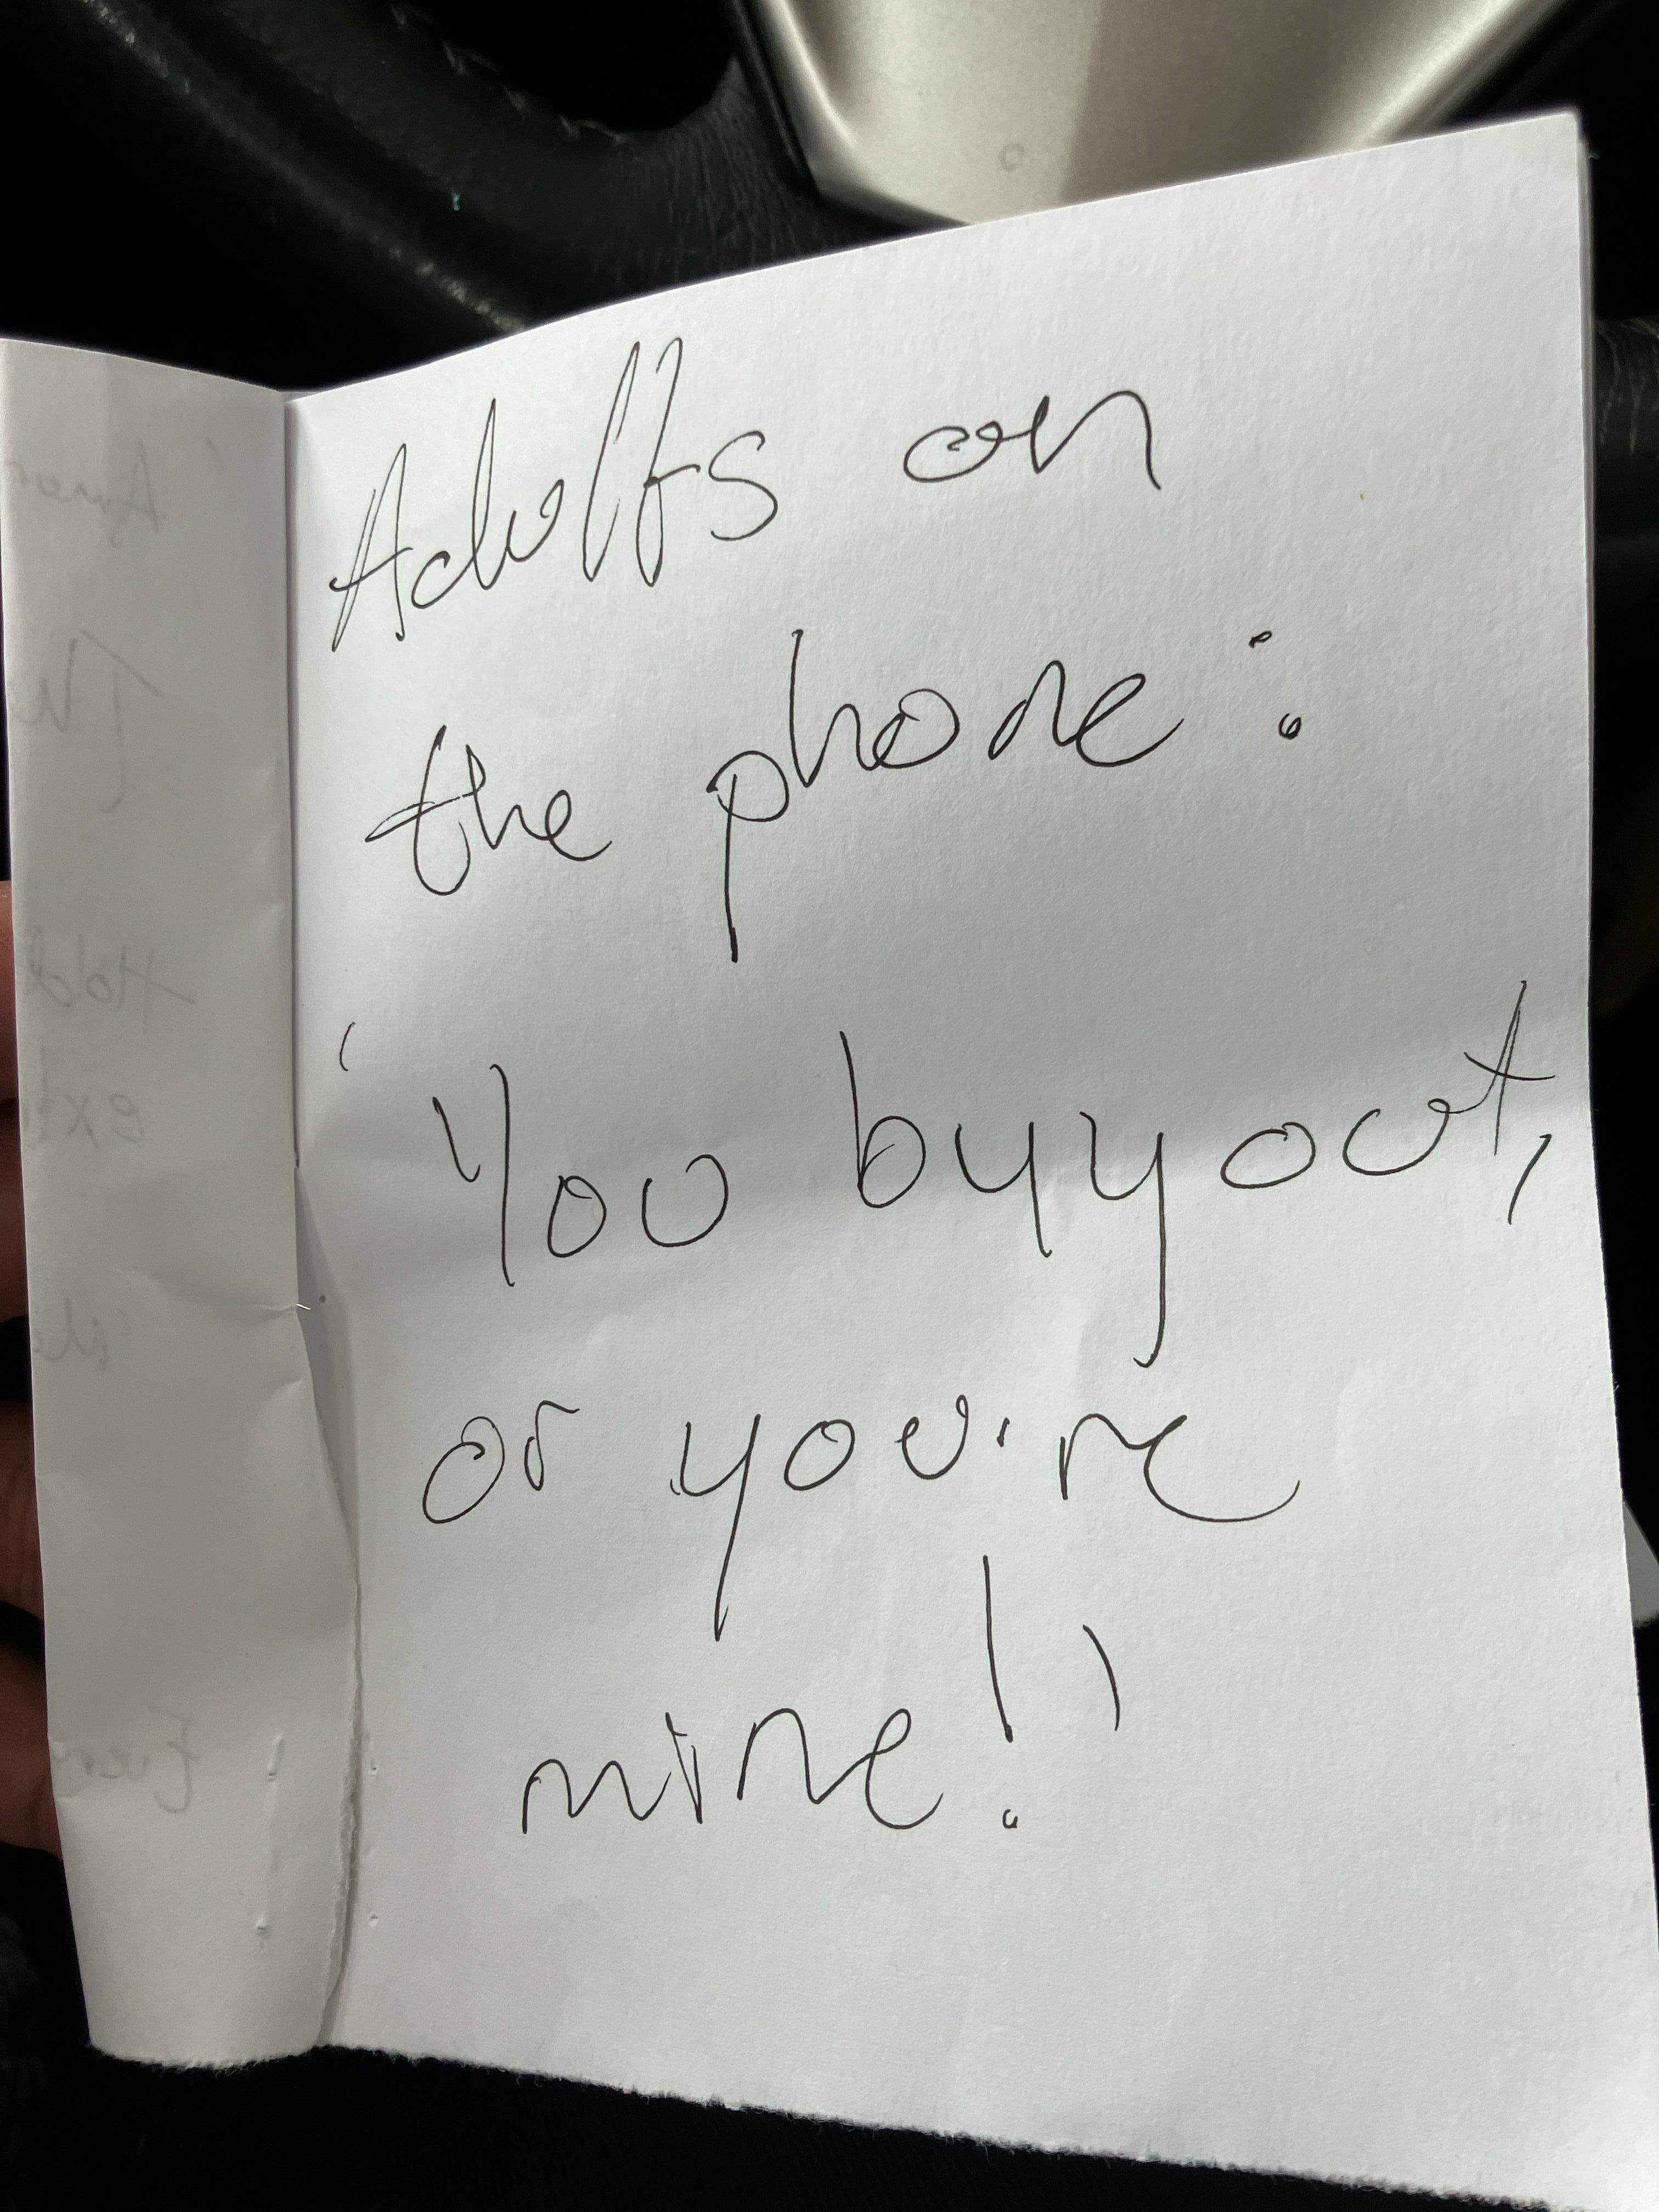 Adults on
the phone:
'You buyout,
or you're
mine!'